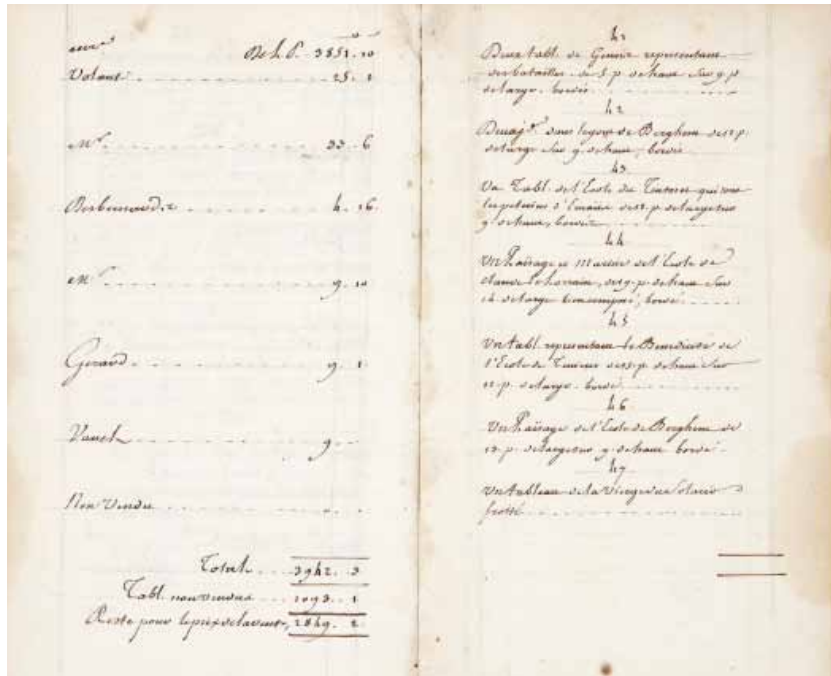 De l. P. 3851. 10
Volant 25. 1
Mr 33. 6
4. 16
Mr 9. 10
Gerard 9. 1
9
Non Vendu
Total 3942. 3
Tabl. non vendus 1093. 1
Reste pour le prix de la vente, 2849. 2
41
Deux tabl. de Genie representant
des batailles de 5. p. de haut sur 9. p
de large. bordés
42
Deux sous le gout de Berghem de 12. p.
de large sur 9. de haut, bordés
43
Un Tabl. de l'Ecole du qui sont
d'Emaüs de 12. p. de large sur
9. de haut, bordé
44
Un Païsage et Marine de l'Ecole de
Claude le Lorrain, de 9. p. de haut sur
14 de large, bordé
45
Un tabl. representant le Benedicite de
l'Ecole de Teniers de p. de haut sur
12. p. de large. bordé
46
Un Païsage de l'Ecole de Berghem de
12. p. de large sur 9. de haut bordé
47
Un tableau de la Vierge